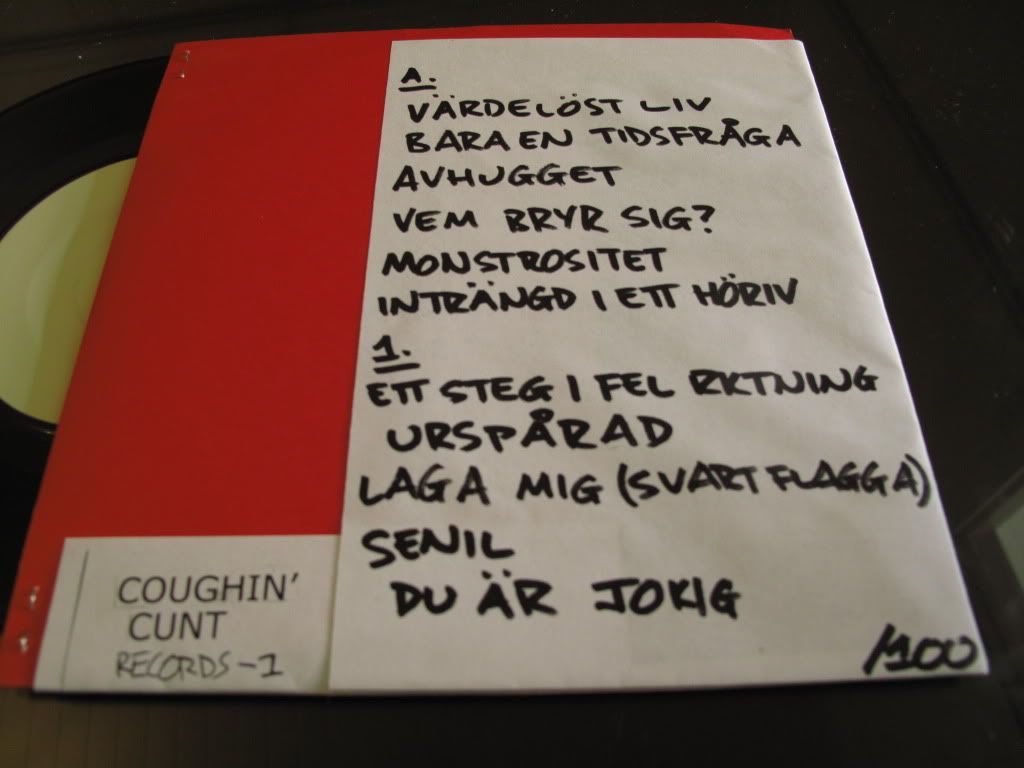 A.
VÄRDELÖST LIV
BARA EN TIDSFRÅGA
AVHUGGET
VEM BRYR SIG?
MONSTROSITET
INTRÄNGD I ETT HÖRIV
1.
ETT STEG I FEL RKTNING
URSPÅRAD
LAGA MIG (SVART FLAGGA)
SENIL
DU ÄR JOKIG
/100
COUGHIN'
CUNT
RECORDS-1